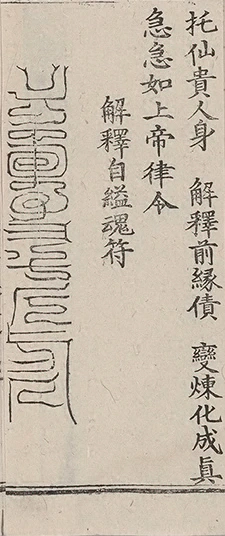 托仙貴人身　解釋前緣債　變煉化成眞
急急如上帝律令
解釋自縊魂符